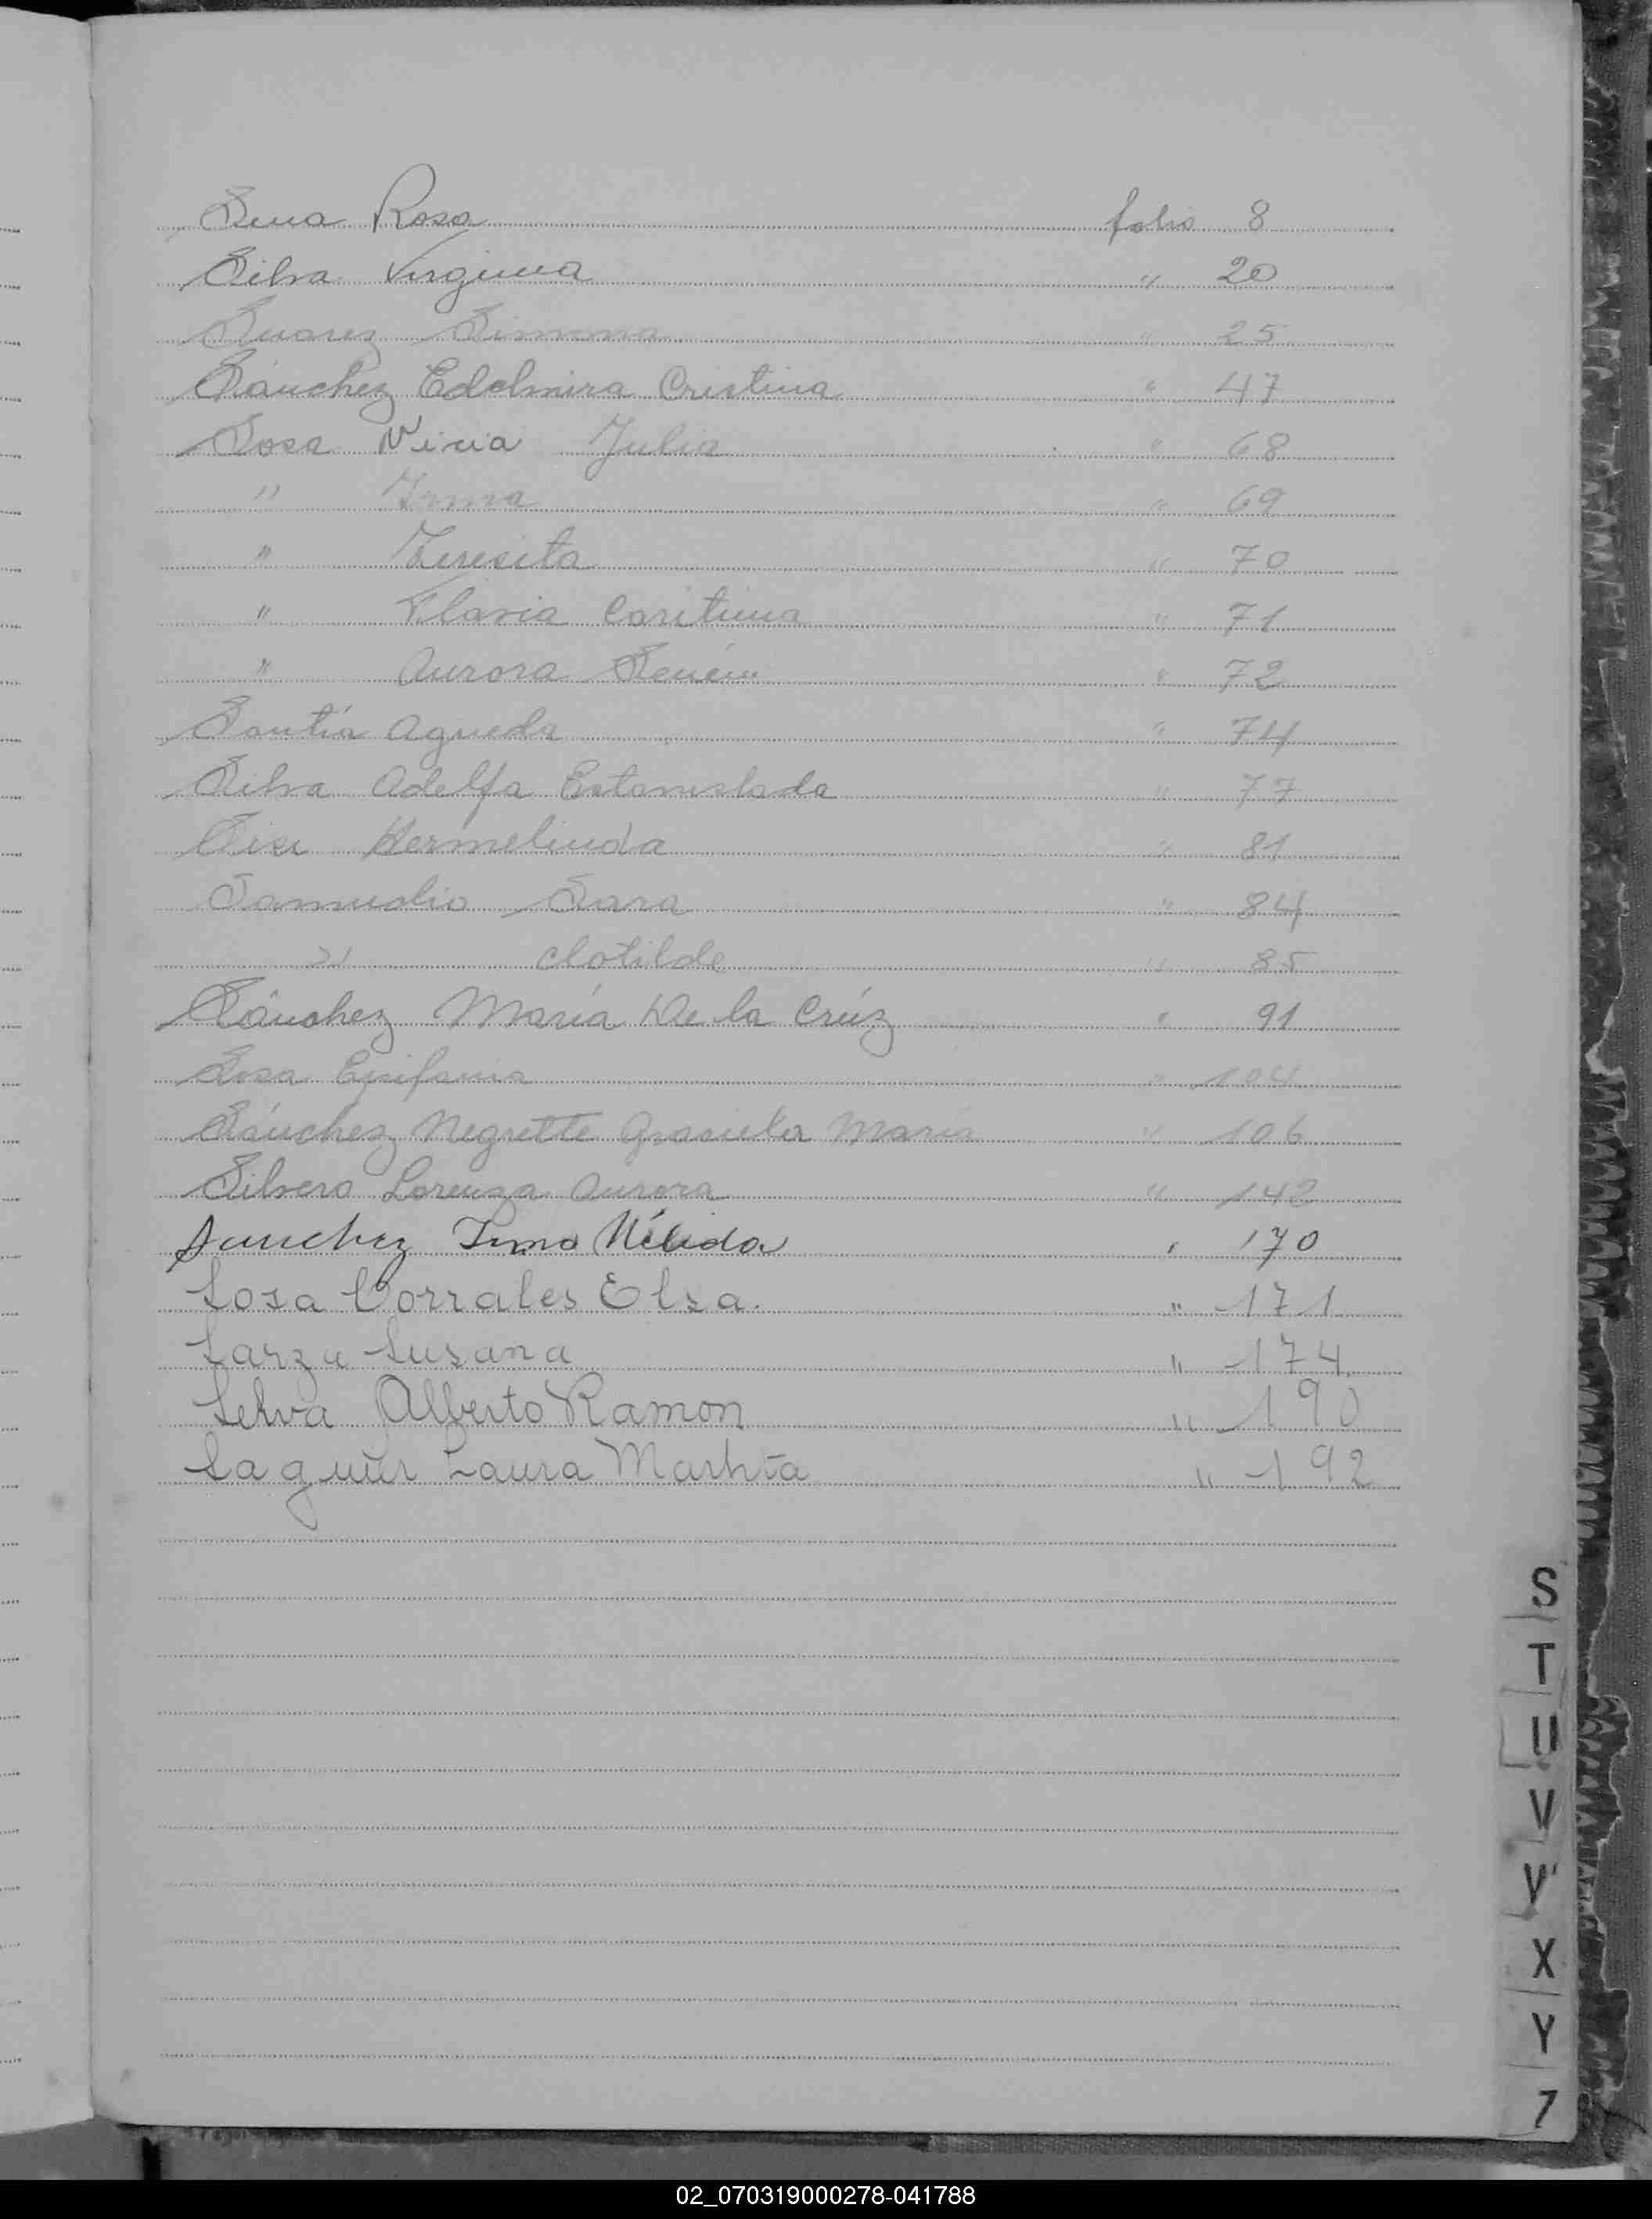 Sena Rosa folio 8
Silva Virginia " 20
Suarez Simona " 25
Sánchez Edelmira Cristina " 47
Sosa Niria Julia " 68
" Irma " 69
" Teresita " 70
" Flavia Caritina " 71
" Aurora Irenéu " 72
Santía Agueda " 74
Silva Adelfa Estanislada " 77
Hermelinda " 81
Samudio Sara " 84
" Clotilde " 85
Sánchez María De la Crúz " 91
Sosa Epifania " 104
Sánchez Negrette Graciela María " 106
Silvero Lorenza Aurora " 142
Sanchez Irma Nélida " 170
Sosa Corrales Elsa. " 171
Sarza Susana " 174
Selva Alberto Ramon " 190
Laura " 192
S
T
U
V
W
X
Y
Z
02_070319000278-041788